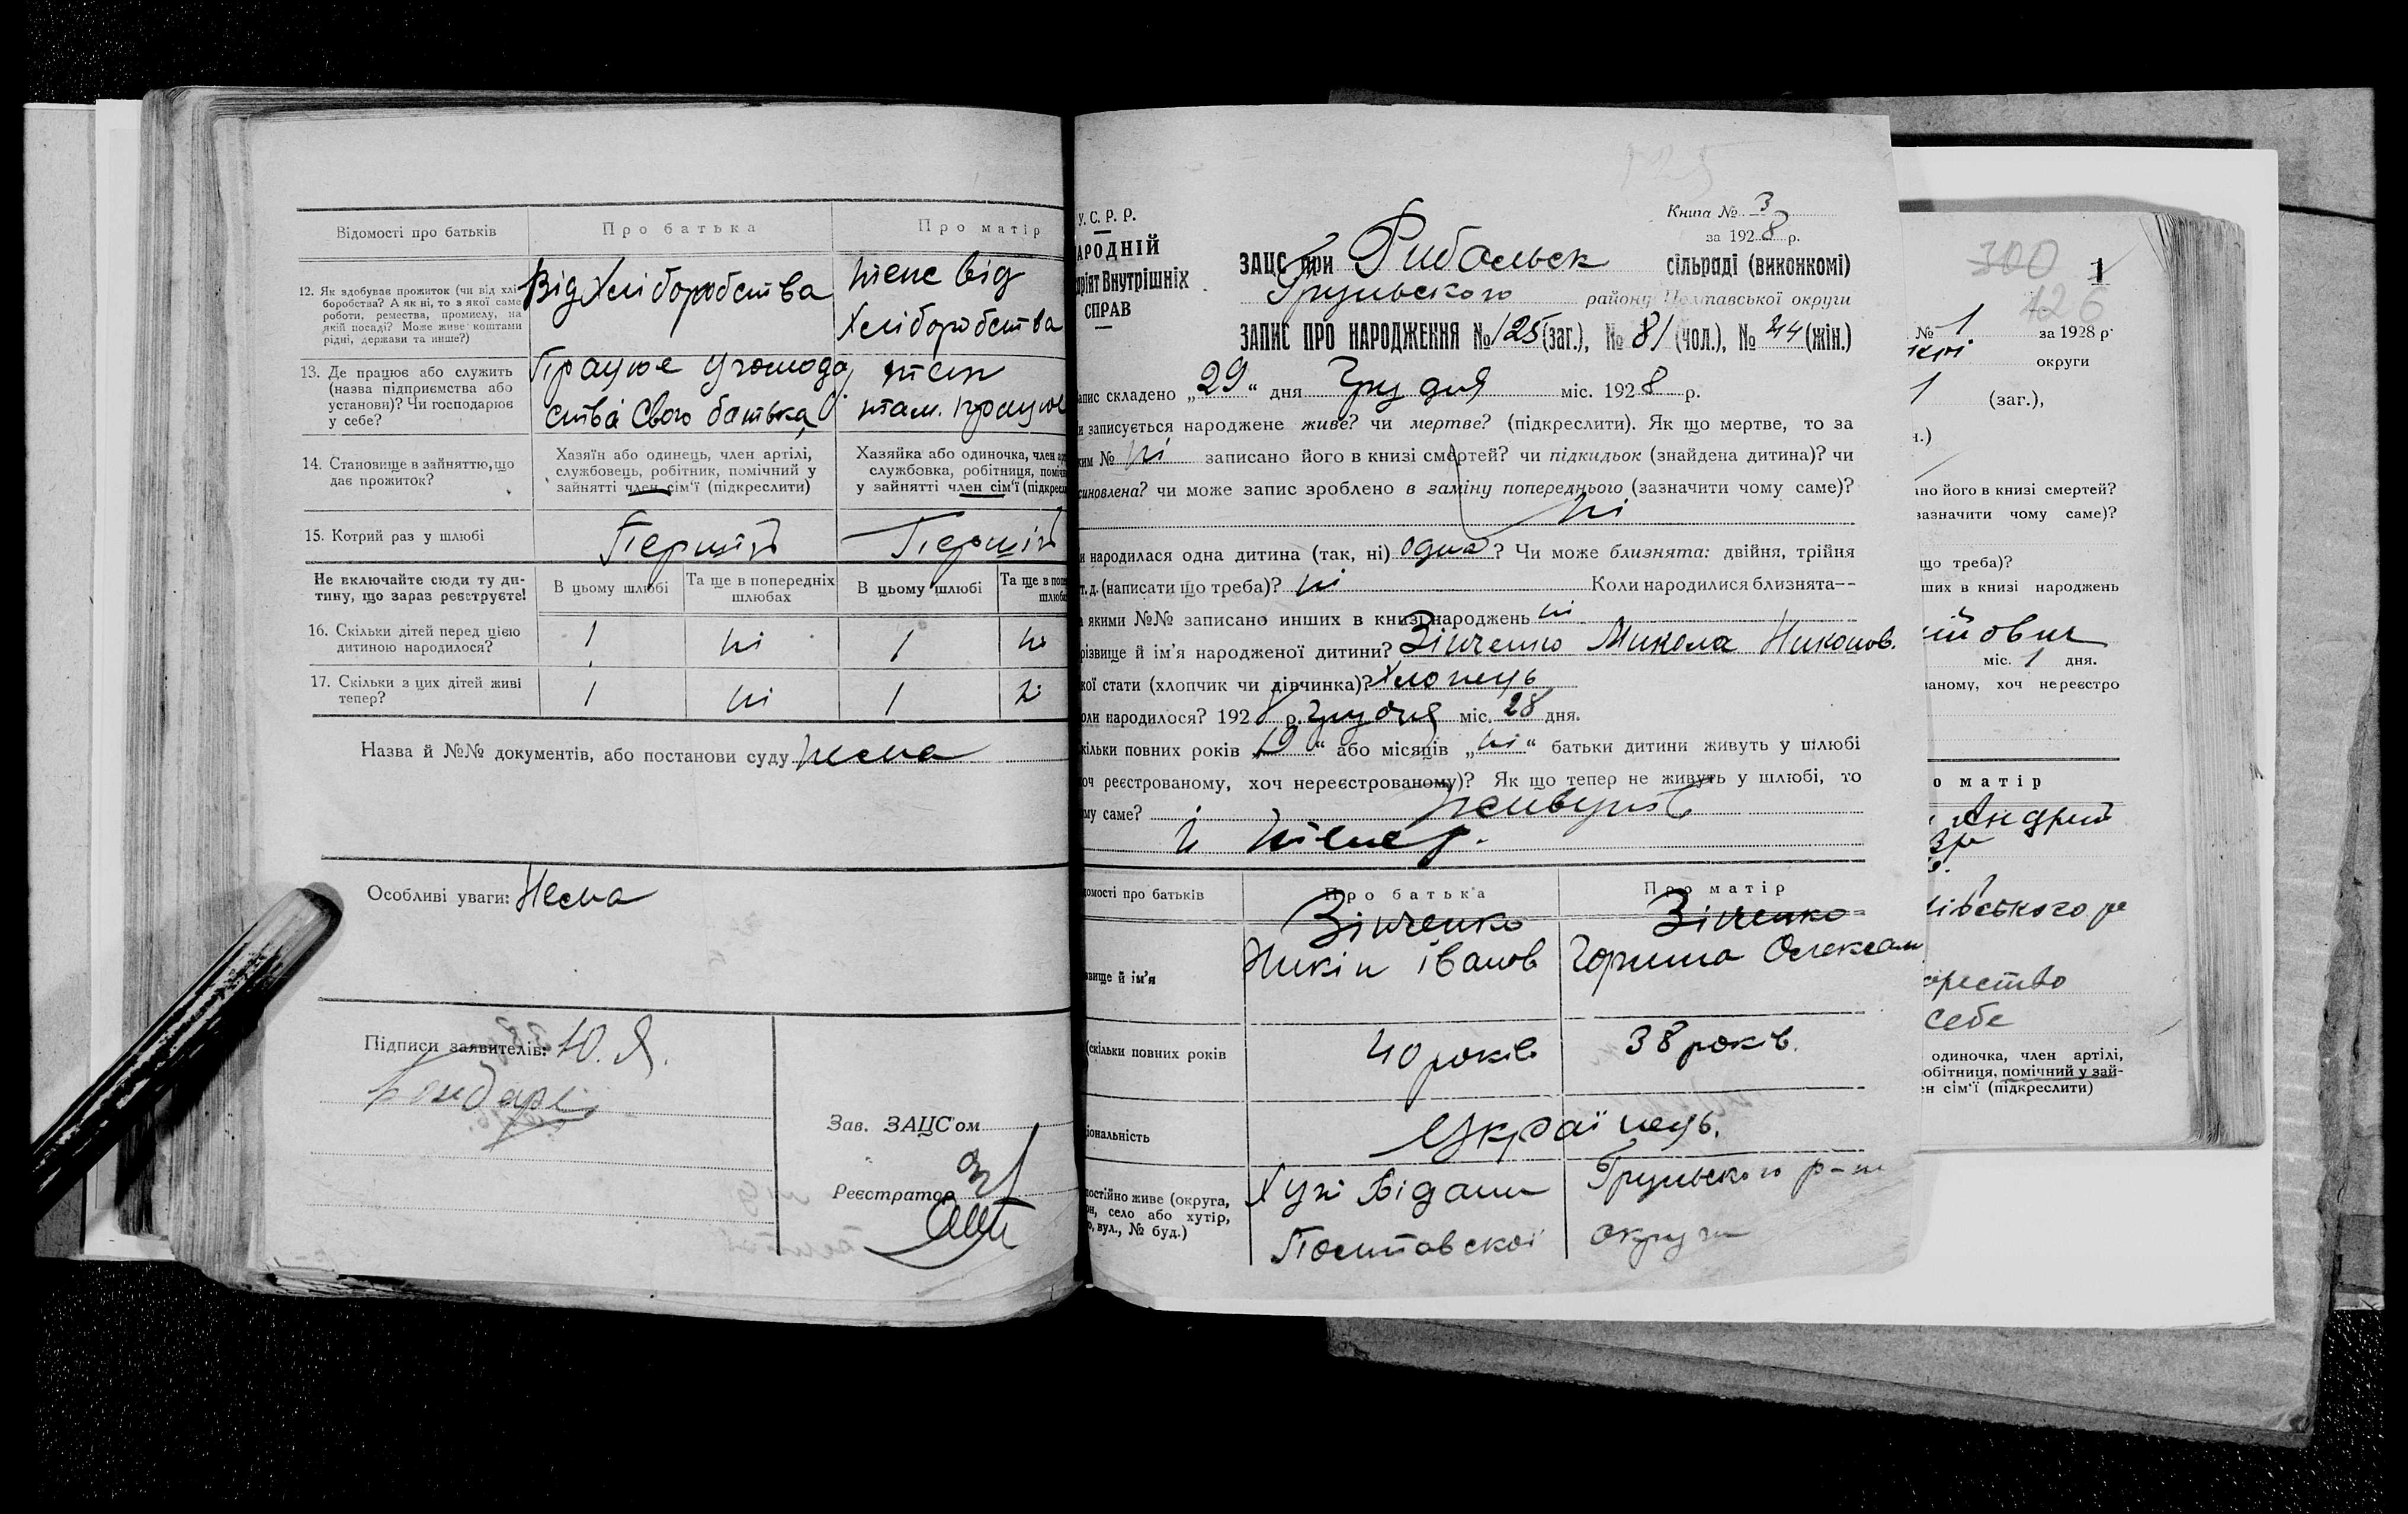 Відомості про батьків
Про батька
Про матір
12. Як здобуває прожиток (чи від хлі-
боробства? А як ні, то з якої саме
роботи, ремества, промислу, на
якій посаді? Може живе коштами
рідні, держави та инше?)
Від Хліборобства
теж від
Хліборобства
13. Де працює або служить
(назва підприємства або
установи)? Чи господарює
у себе?
Працює у господар
ства Свого батька
теж
там. працює
14. Становище в зайняттю, що
дає прожиток?
Хазяїн або одинець, член артілі,
службовець, робітник, помічний у
зайнятті член сім'ї (підкреслити)
Хазяйка або одиночка, член ар
службовка, робітниця, поміч
у зайнятті член сім'ї (підкресл
15. Котрий раз у шлюбі
Перший
Перший
Не включайте сюди ту ди-
тину, що зараз реєструєте!
В цьому шлюбі
Та ще в попередніх
шлюбах
В цьому шлюбі
Та ще в попе
шлюба
16. Скільки дітей перед цією
дитиною народилося?
1
ні
1
ні
17. Скільки з цих дітей живі
тепер?
1
ні
1
Назва й №№ документів, або постанови суду Нема
Особливі уваги: Нема
Підписи заявителів: Ю. Я.
Зав. ЗАЦС'ом
Реєстратор
У. С. Р. Р.
АРОДНІЙ
ріят Внутрішніх
СПРАВ
Книга № 3
за 1928 р.
ЗАЦС при Рибальск сільраді (виконкомі)
Грунського району Полтавської округи
ЗАПИС ПРО НАРОДЖЕННЯ № 125 (заг.), № 81 (чол.), № 44 (жін.)
апис складено „29“ дня Грудня міс. 1928 р.
и записується народжене живе? чи мертве? (підкреслити). Як що мертве, то за
ким № ні записано його в книзі смертей? чи підкидьок (знайдена дитина)? чи
синовлена? чи може запис зроблено в заміну попереднього (зазначити чому саме)?
ні
и народилася одна дитина (так, ні) одна? Чи може близнята: двійня, трійня
т. д. (написати що треба)? ні Коли народилися близнята—
якими №№ записано инших в книзі народжень ні
різвище й ім'я народженої дитини? Зінченко Микола Никонов.
кої стати (хлопчик чи дівчинка)? Хлопець
оли народилося? 1928 р. Грудня міс. 28 дня.
кільки повних років „19“ або місяців „ні“ батьки дитини живуть у шлюбі
оч реєстрованому, хоч нереєстрованому)? Як що тепер не живуть у шлюбі, то
му саме? живуть
й тепер.
домості про батьків
Про батька
Про матір
звище й ім'я
Зінченко
Никін Іванов
Зінченко
Горпина Олексан
скільки повних років
40 років
38 років.
іональність
Українець.
постійно живе (округа,
он, село або хутір,
о, вул., № буд.)
Бідани
Грунського р-ну
Полтавської
округи
300
1
126
№ 1 за 1928 р.
округи
1 (заг.),
н.)
ано його в книзі смертей?
зазначити чому саме)?
що треба)?
ших в книзі народжень
йович
міс. 1 дня.
ваному, хоч нереєстро
о матір
одиночка, член артілі,
обітниця, помічний у зай-
ен сім'ї (підкреслити)
себе